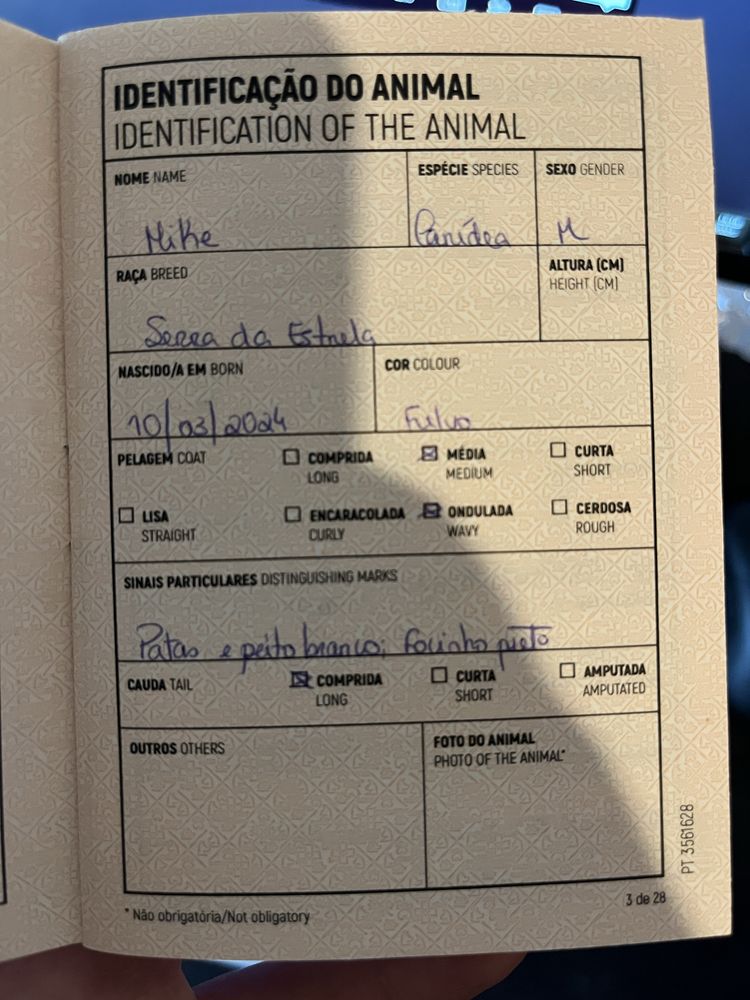 IDENTIFICAÇÃO DO ANIMAL
IDENTIFICATION OF THE ANIMAL
NOME NAME
Mike
ESPÉCIE SPECIES
Canídea
SEXO GENDER
M
RAÇA BREED
Serra da Estrela
ALTURA (CM)
HEIGHT (CM)
NASCIDO/A EM BORN
10/03/2024
COR COLOUR
Fulvo
PELAGEM COAT
COMPRIDA
LONG
MÉDIA
MEDIUM
CURTA
SHORT
LISA
STRAIGHT
ENCARACOLADA
CURLY
ONDULADA
WAVY
CERDOSA
ROUGH
SINAIS PARTICULARES DISTINGUISHING MARKS
Patas e peito branco; focinho preto
CAUDA TAIL
COMPRIDA
LONG
CURTA
SHORT
AMPUTADA
AMPUTATED
OUTROS OTHERS
FOTO DO ANIMAL
PHOTO OF THE ANIMAL*
PT 3561628
* Não obrigatória/Not obligatory
3 de 28